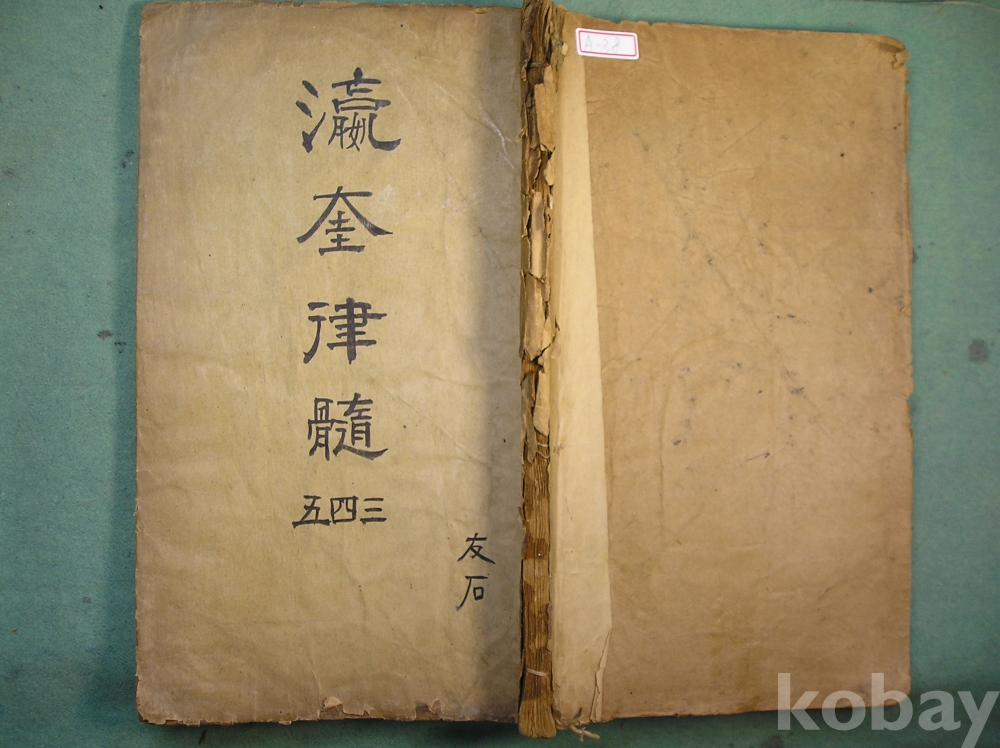 瀛奎律髓
三四五
友石
A-28
kobay